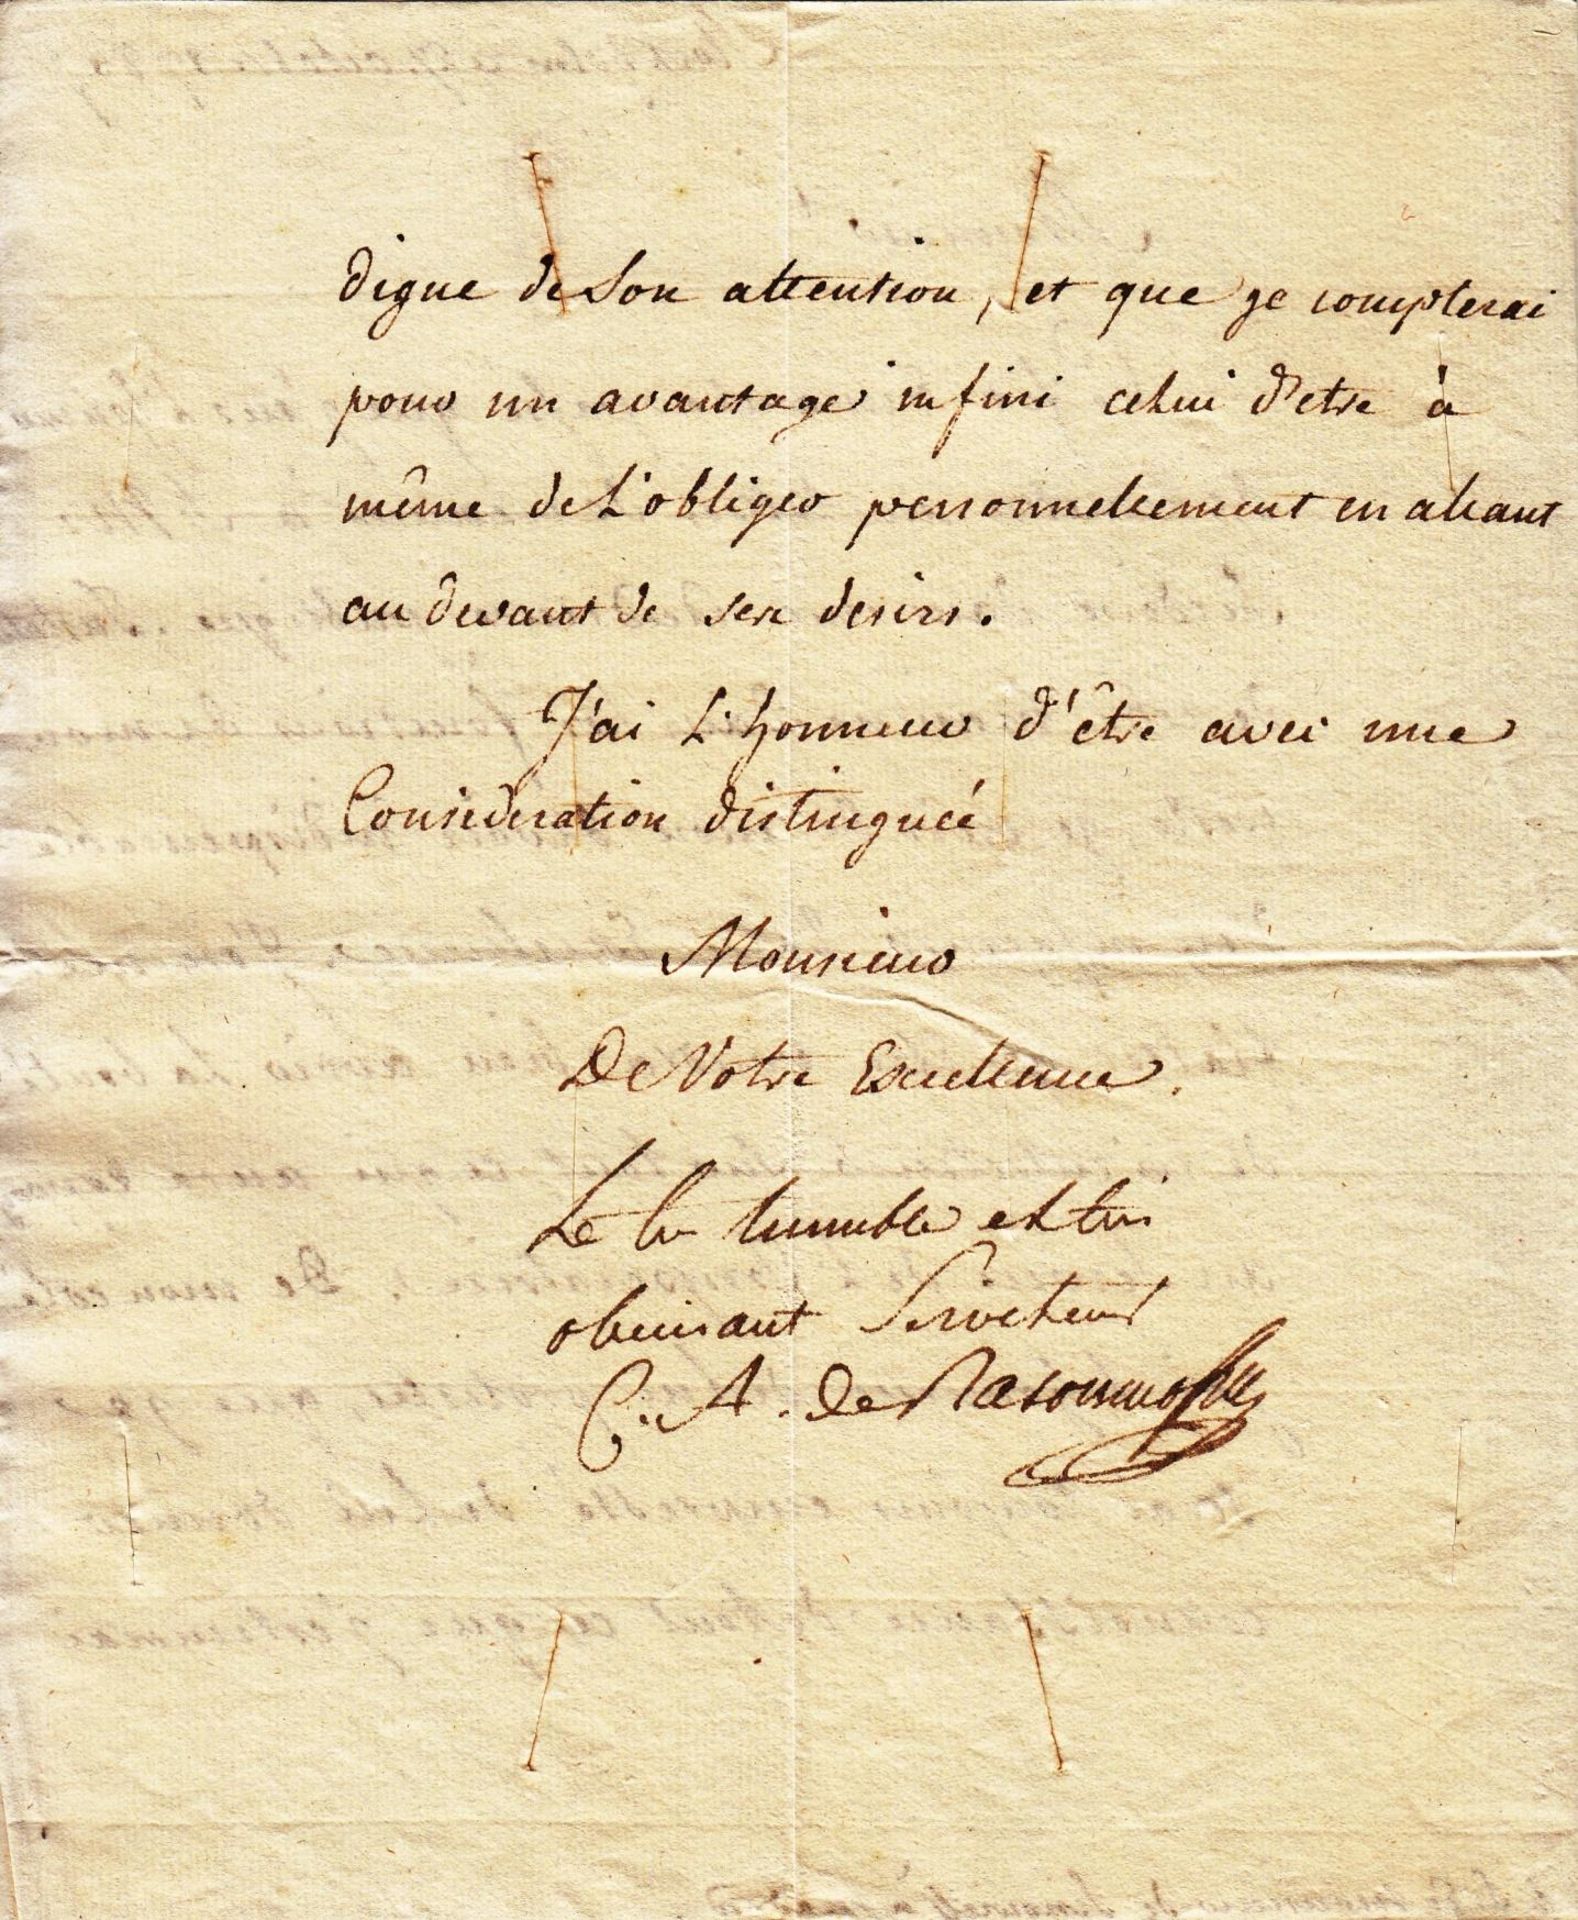 digne de Son attention, et que je compterai
pour un avantage infini celui d'etre à
même de L'obliger personnellement en allant
au devant de ses desirs.
J'ai L'honneur d'être avec une
Consideration distinguée
Monsieur
De Votre Excellence.
Le tr humble et trs
obeissant Serviteur
C. A. de Rasoumoffsky